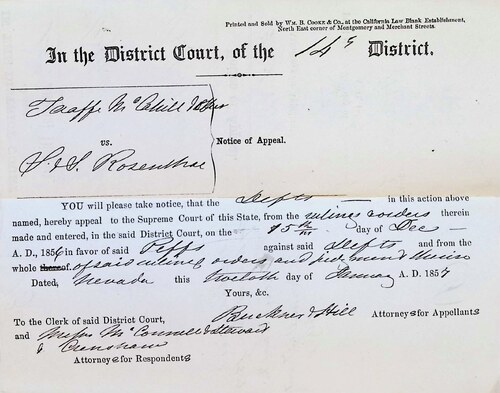 Printed and Sold by WM. B. COOKE & CO., at the California Law Blank Establishment,
North East corner of Montgomery and Merchant Streets.
In the District Court, of the 14th District.
Taaffe McCahill & Others
vs.
Notice of Appeal.
S & S Rosenthal
YOU will please take notice, that the Defts in this action above
named, hereby appeal to the Supreme Court of this State, from the rulings & orders therein
made and entered, in the said District Court, on the 15th day of Dec
A. D., 1856 in favor of said Plffs against said Defts and from the
whole thereof of said rulings orders and judgment therein
Dated, Nevada this day of January A. D. 1857
Yours, &c.
Buckner & Hill Attorneys for Appellants
To the Clerk of said District Court,
and Messrs McConnell & Steward
& Crenshaw
Attorneys for Respondents